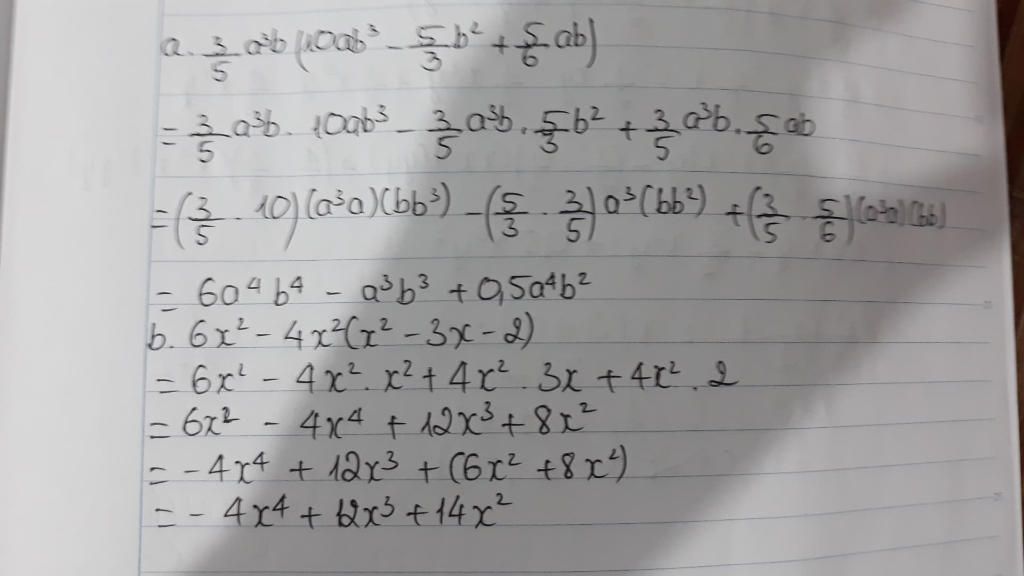 a. 3/5 a³b (10ab³ - 5/3 b² + 5/6 ab)
= 3/5 a³b . 10ab³ - 3/5 a³b . 5/3 b² + 3/5 a³b . 5/6 ab
= (3/5 . 10)(a³a)(bb³) - (5/3 . 3/5) a³(bb²) + (3/5 . 5/6)(a³a)(bb)
= 6a⁴b⁴ - a³b³ + 0,5a⁴b²
b. 6x² - 4x²(x² - 3x - 2)
= 6x² - 4x² . x² + 4x² . 3x + 4x² . 2
= 6x² - 4x⁴ + 12x³ + 8x²
= - 4x⁴ + 12x³ + (6x² + 8x²)
= - 4x⁴ + 12x³ + 14x²